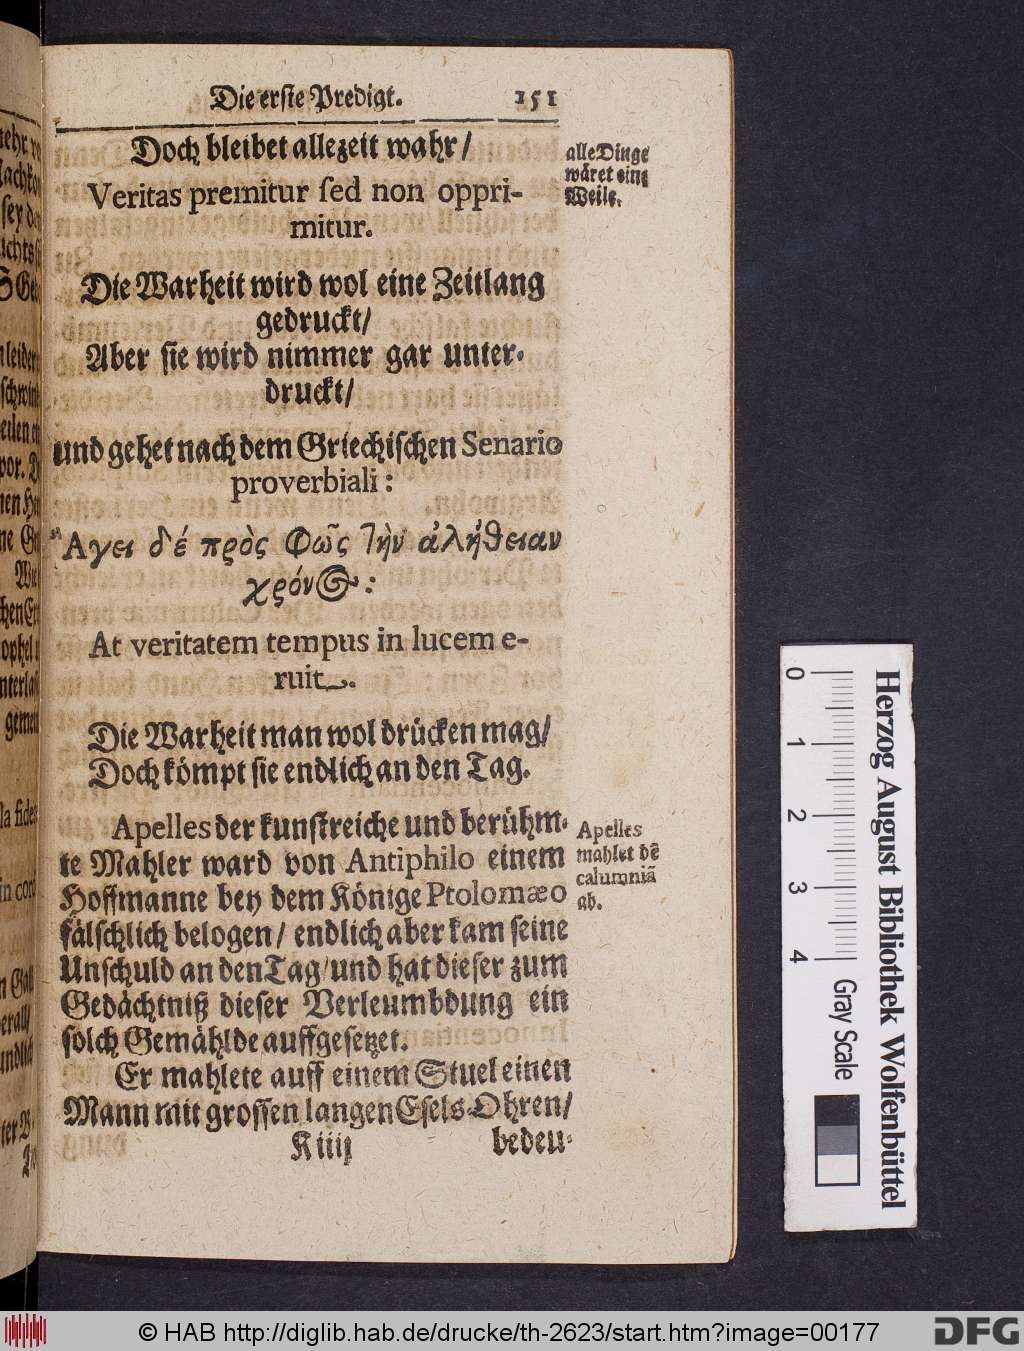 Die erste Predigt. 151
Doch bleibet allezeit wahr/
alle Dinge
wäret eine
Weile.
Veritas premitur sed non oppri-
mitur.
Die Warheit wird wol eine Zeitlang
gedruckt/
Aber sie wird nimmer gar unter-
druckt/
und gehet nach dem Griechischen Senario
proverbiali:
Ἄγει δέ πρὸς Φῶς τὴν ἀλήθειαν
χρόνος:
At veritatem tempus in lucem e-
ruit.
Die Warheit man wol drücken mag/
Doch kömpt sie endlich an den Tag.
Apelles der kunstreiche und berühm-
te Mahler ward von Antiphilo einem
Hoffmanne bey dem Könige Ptolomæo
fälschlich belogen/ endlich aber kam seine
Unschuld an den Tag/ und hat dieser zum
Gedächtniß dieser Verleumbdung ein
solch Gemählde auffgesetzet.
Apelles
mahlet dē
calumniā
ab.
Er mahlete auff einem Stuel einen
Mann mit grossen langen Esels-Ohren/
K iiij bedeu-
0 1 2 3 4
Gray Scale
Herzog August Bibliothek Wolfenbüttel
© HAB http://diglib.hab.de/drucke/th-2623/start.htm?image=00177
DFG